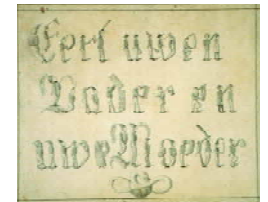 Eert uwen
Vader en
uwe Moeder